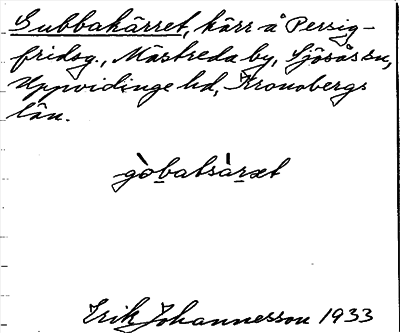 Gubbakärret, kärr å Persig-
fridsg., Mästreda by, Sjösås sn,
Uppvidinge hd, Kronobergs
län.
Erik Johannesson 1933